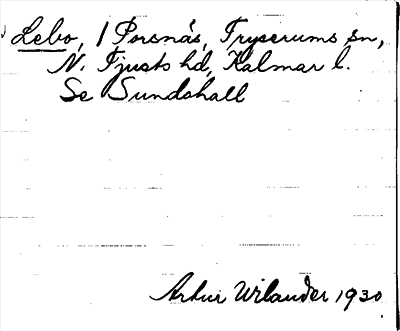 Lebo, 1 Porsnäs, Tryserums sn,
N. Tjusts hd, Kalmar l.
Se Sundshall
Arthur Wilander 1930